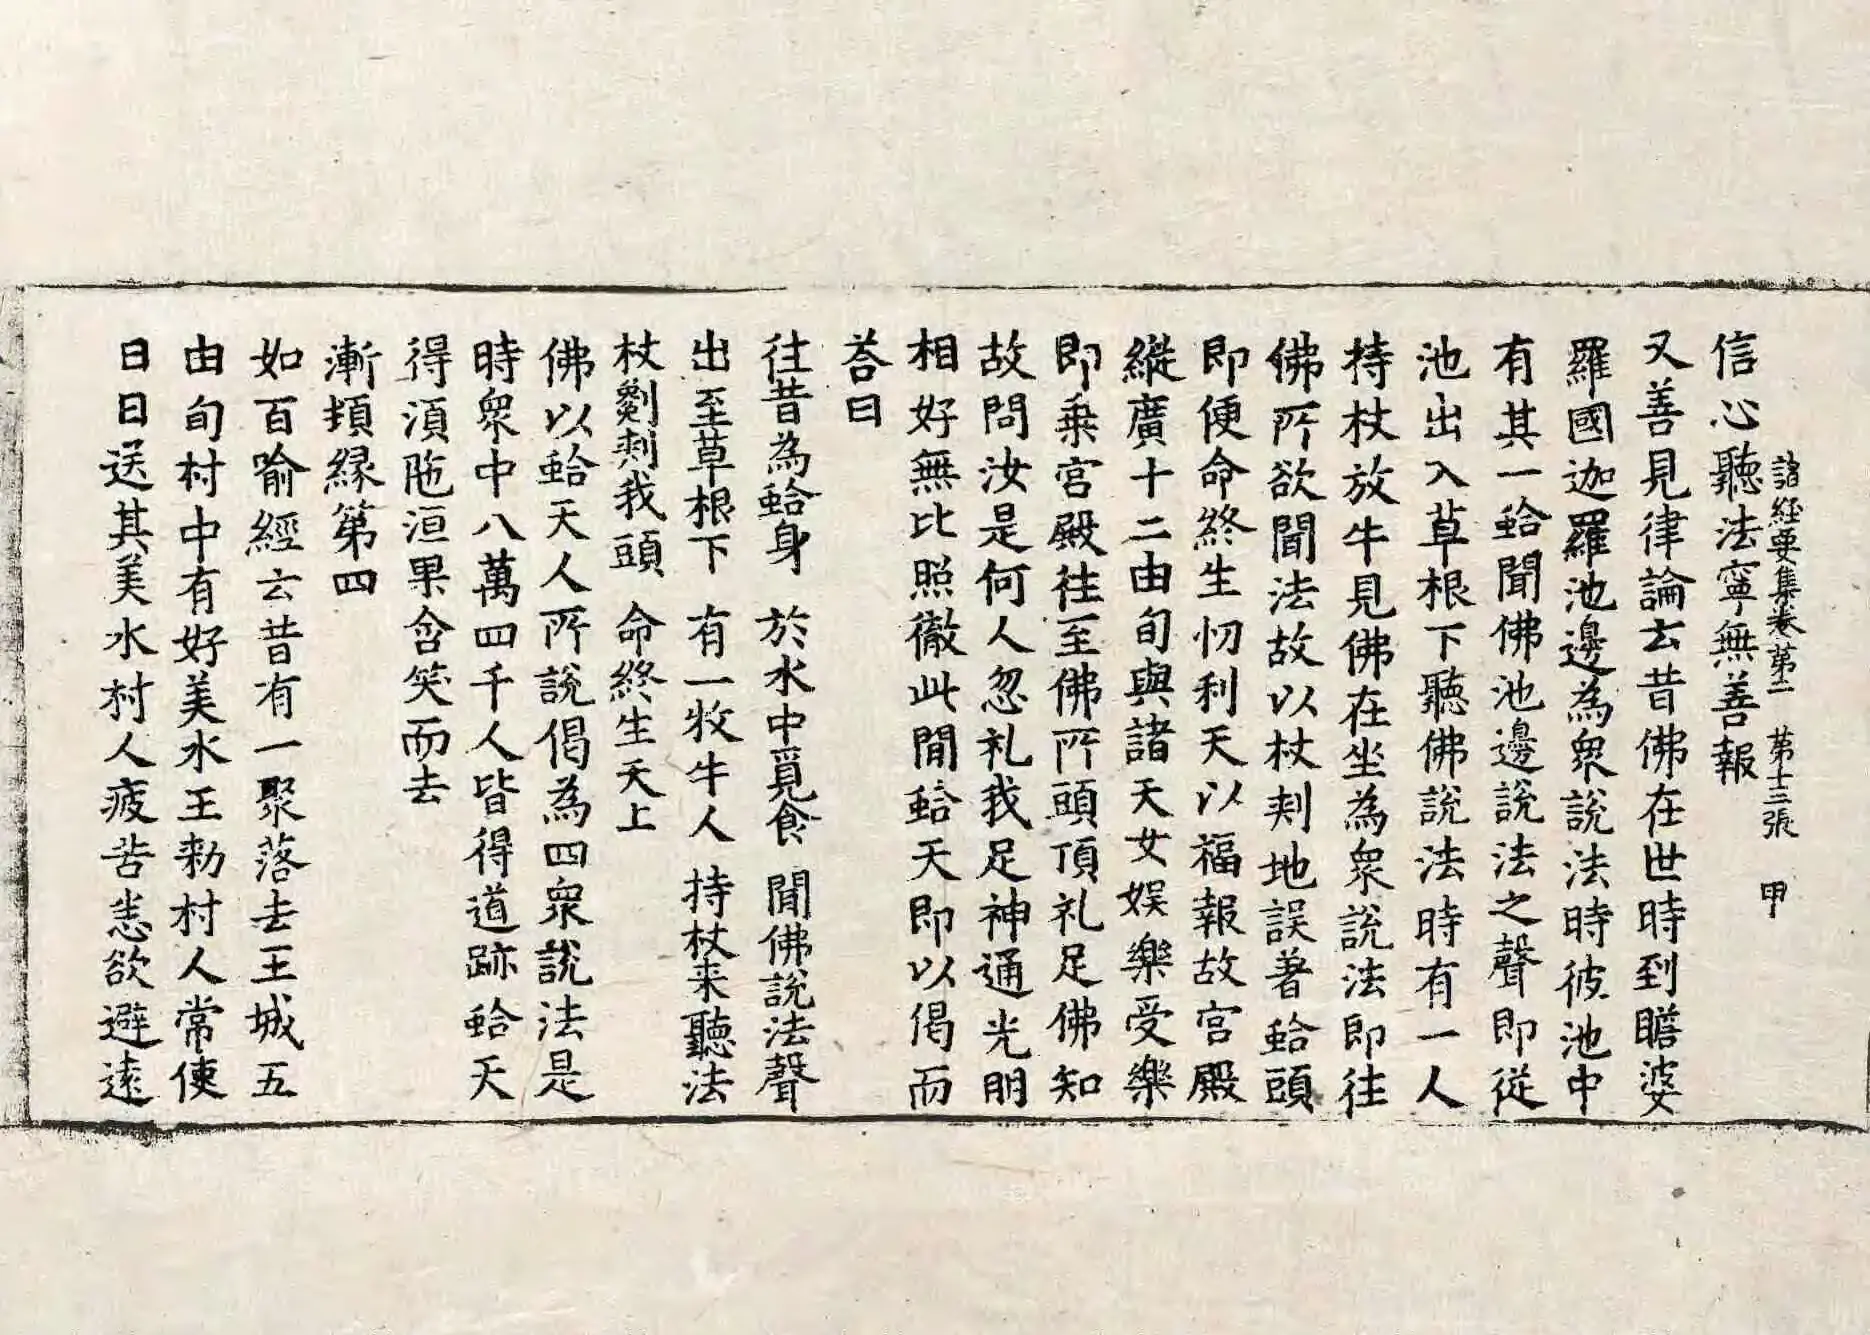 諸経要集卷第二　第十三張　甲
信心聽法寧無善報
又善見律論云昔佛在世時到瞻婆
羅國迦羅羅池邊為衆說法時彼池中
有其一蛤聞佛池邊說法之聲即從
池出入草根下聽佛說法時有一人
持杖放牛見佛在坐為衆說法即往
佛所欲聞法故以杖刾地誤著蛤頭
即便命終生忉利天以福報故宫殿
縱廣十二由旬與諸天女娱樂受樂
即乗宫殿往至佛所頭頂礼足佛知
故問汝是何人忽礼我足神通光明
相好無比照徹此間蛤天即以偈而
荅曰
往昔為蛤身　於水中覓食　聞佛說法聲
出至草根下　有一牧牛人　持杖来聽法
杖劖刾我頭　命終生天上
佛以蛤天人所說偈為四衆說法是
時衆中八萬四千人皆得道跡蛤天
得湏陁洹果含笑而去
漸頓縁第四
如百喻經云昔有一聚落去王城五
由旬村中有好美水王勑村人常使
日日送其美水村人疲苦恚欲避遠